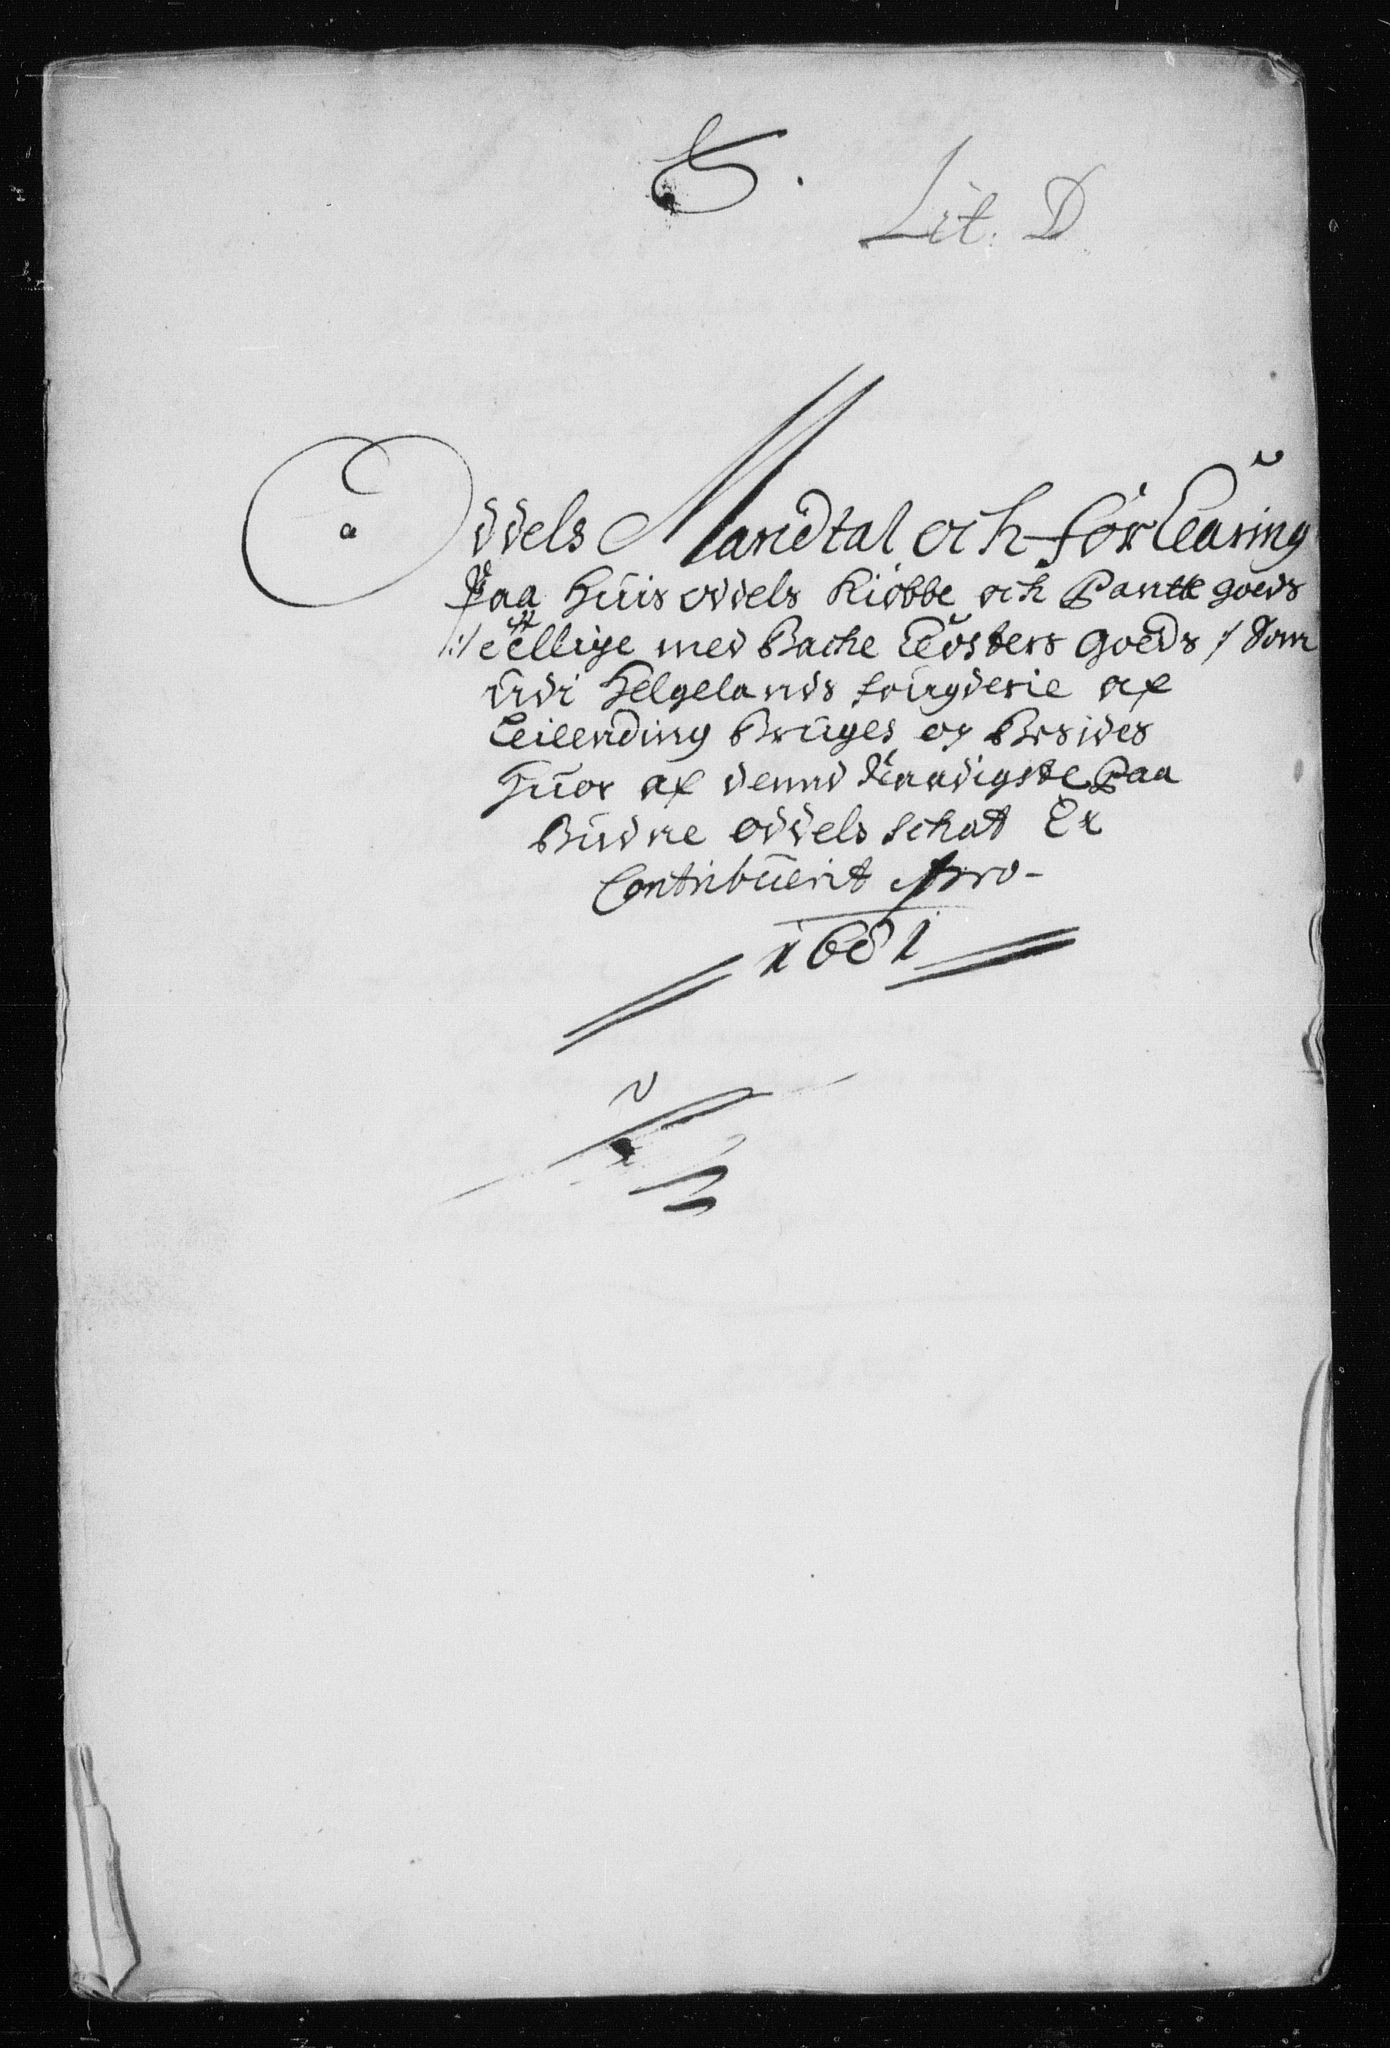 Lit. D
Oddels Mandtal och forClaring
Paa Huis oddels Kiøbbe och Pantte goeds
:/ eellige med Backe Closters Goeds /: Som
udi Helgelands fougderie af
Leilending Bruges og Besides
Huor af dend Naadigste Paa
Budne oddels schat Er
Contribuerit Pro-
1681